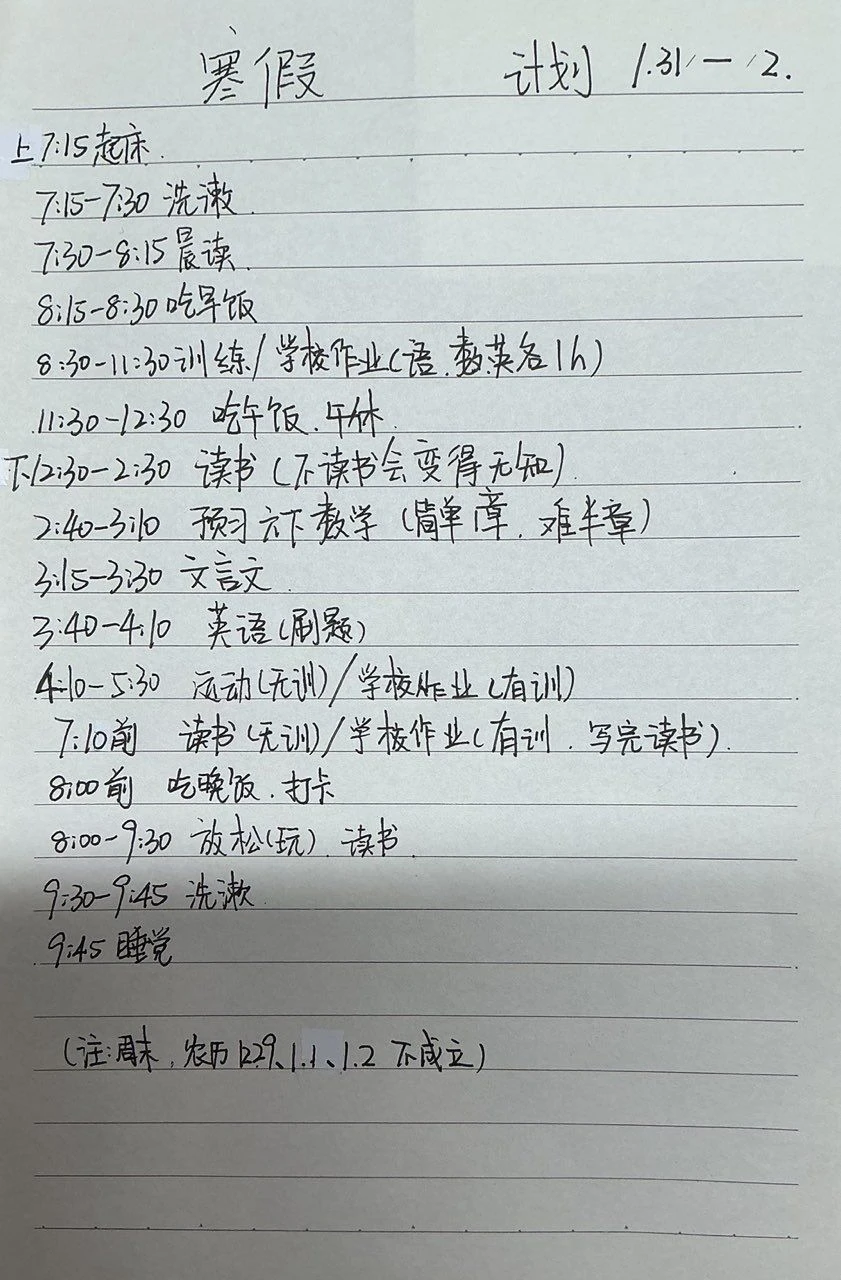 寒假 计划 1.31—2.
上 7:15 起床.
7:15-7:30 洗漱.
7:30-8:15 晨读.
8:15-8:30 吃早饭
8:30-11:30 训练/学校作业(语.数.英各1h)
11:30-12:30 吃午饭.午休.
下 12:30-2:30 读书(不读书会变得无知).
2:40-3:10 预习六下数学(简单1章.难半章)
3:15-3:30 文言文.
3:40-4:10 英语(刷题)
4:10-5:30 运动(无训)/学校作业(有训)
7:10前 读书(无训)/学校作业(有训.写完读书).
8:00前 吃晚饭.打卡
8:00-9:30 放松(玩).读书.
9:30-9:45 洗漱.
9:45 睡觉
(注:周末,农历12.29、1.1、1.2 不成立)